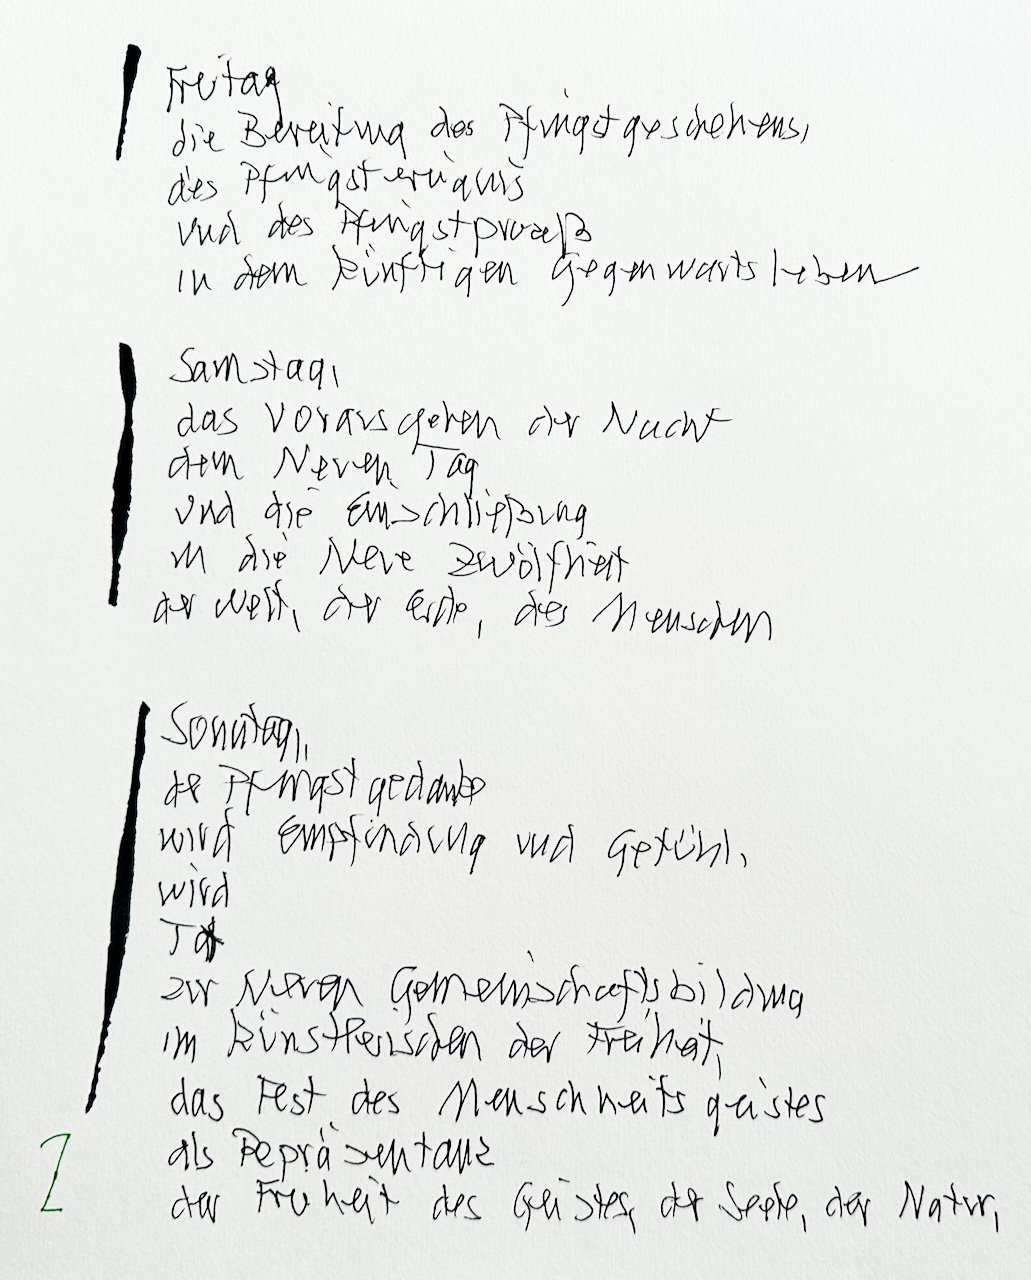 Freitag
die Bereitung des Pfingstgeschehens,
des Pfingstereignis
und des Pfingstprozeß
in dem künftigen Gegenwartsleben
Samstag,
das Vorausgehen der Nacht
dem Neuen Tag
und die Einschließung
in die Neue Zwölfheit
der Welt, der Erde, des Menschen
Sonntag,
der Pfingstgedanke
wird Empfindung und Gefühl,
wird
Tat
zur Neuen Gemeinschaftsbildung
im Künstlerischen der Freiheit,
das Fest des Menschheitsgeistes
als Repräsentanz
der Freiheit des Geistes, der Seele, der Natur,